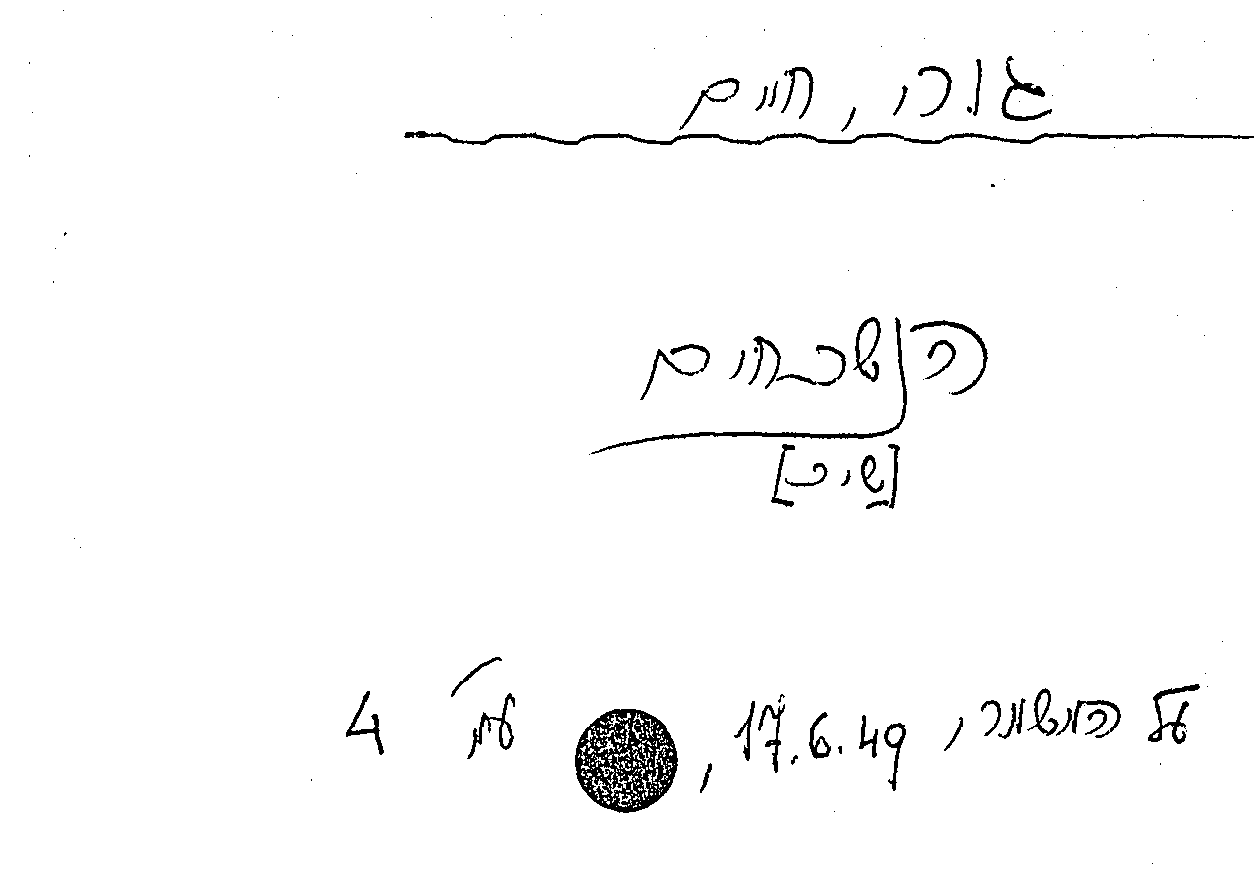 גורי, חיים
הנשכחים
[שיר]
על המשמר, 17.6.49, עמ' 4